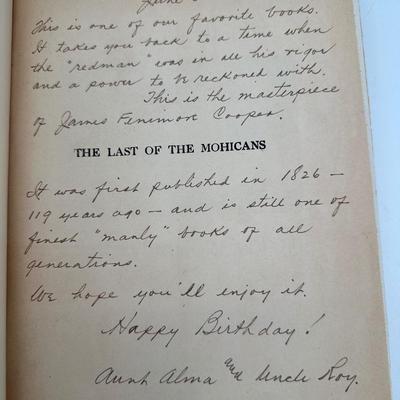 June
This is one of our favorite books.
It takes you back to a time when
the "redman" was in all his vigor
and a power to be reckoned with.
This is the masterpiece
of James Fenimore Cooper.
THE LAST OF THE MOHICANS
It was first published in 1826 —
119 years ago — and is still one of
finest "manly" books of all
generations.
We hope you'll enjoy it.
Happy Birthday!
Aunt Alma and Uncle Roy.